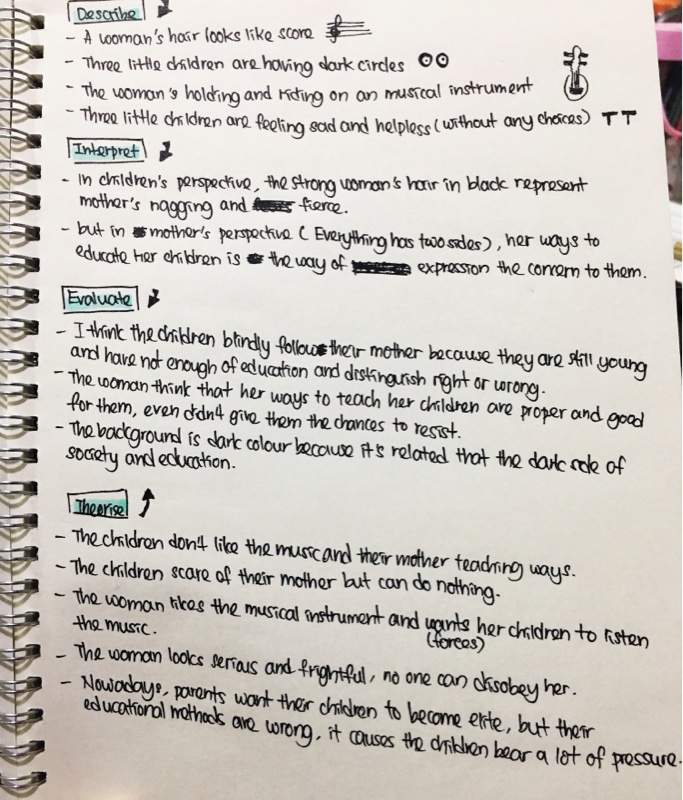 Describe
- A woman's hair looks like score
- Three little children are having dark circles
- The woman's holding and riding on an musical instrument
- Three little children are feeling sad and helpless (without any choices) TT
Interpret
- In children's perspective, the strong woman's hair in black represent
mother's nagging and fierce.
- but in mother's perspective (Everything has two sides), her ways to
educate Her children is the way of expression the concern to them.
Evaluate
- I think the children blindly follow their mother because they are still young
and have not enough of education and distinguish right or wrong.
- The woman think that her ways to teach her children are proper and good
for them, even didn't give them the chances to resist.
- The background is dark colour because it's related that the dark side of
society and education.
Theorise
- The children don't like the music and their mother teaching ways.
- The children scare of their mother but can do nothing.
- The woman likes the musical instrument and wants her children to listen
(forces)
the music.
- The woman looks serious and frightful, no one can disobey her.
- Nowadays, parents want their children to become elite, but their
educational methods are wrong, it causes the children bear a lot of pressure.